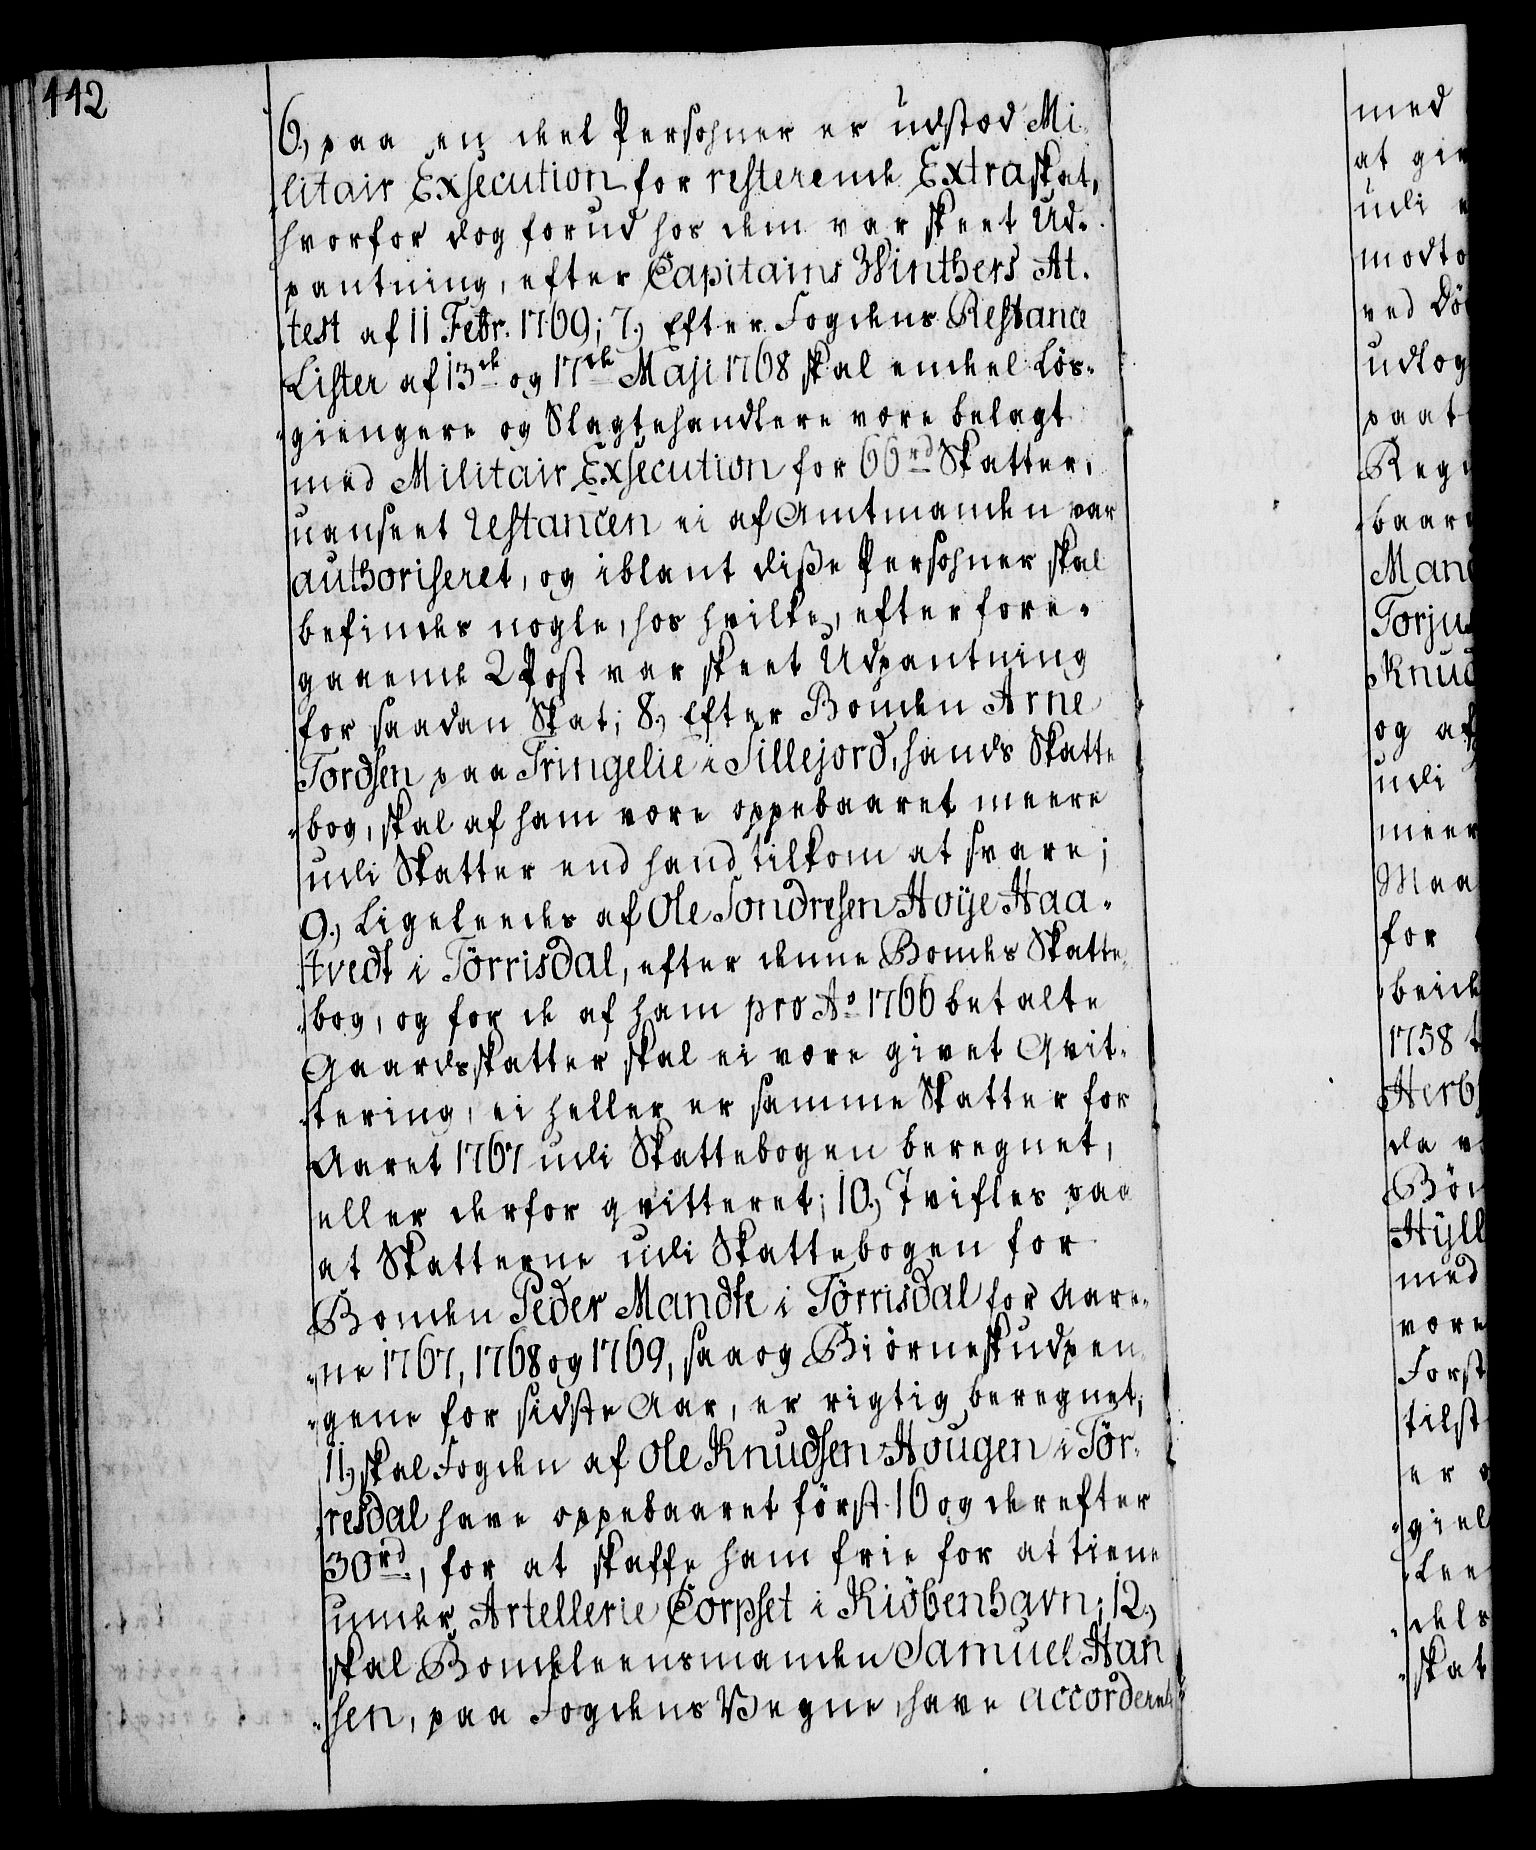 112
6, paa en deel Persohner er udstæd Mi-
litair Exsecution for resterende Extraskat,
hvorfor dog forud hos dem var skeet Ud-
pantning, efter Capitains Winthers At-
test af 11 Febr. 1769; 7, Efter Fogdens Restance
Lister af 13de og 17de Maji 1768 skal endeel Lös-
giengere og Slagtehandlere være belagt
med Militair Exsecution for 66rd Skatter,
uanseet Restancen ei af Amtmanden var
authoriseret, og iblant diße Persohner skal
befindes nogle, hos hvilke, efter fore-
gaaende 2 Post var skeet Udpantning
for saadan Skat; 8, Efter Bonden Arne
Tordsen paa Tringelie i Sillejord, hands Skatte
bog, skal af ham være oppebaaret meere
udi Skatter end hand tilkom at svare;
9, Ligeleedes af Ole Sondresen Hoÿe Haa-
tvedt i Törrisdal, efter denne Bondes Skatte
bog, og for de af ham pro Ao 1766 betalte
Gaardsskatter skal ei være givet Qvit-
tering, ei heller er samme Skatter for
Aaret 1767 udi Skattebogen beregnet,
eller derfor qvitteret; 10, Tvifles paa
at Skatterne udi Skattebogen for
Bonden Peder Mandte i Törrisdal for Aare-
ne 1767, 1768 og 1769, saa og Biörneskudpen-
gene for sidste Aar, er rigtig beregnet;
11, skal Fogden af Ole Knudsen Hougen i Tör-
resdal have oppebaaret först 16 og derefter
30rd, for at skaffe ham frie for at tiene
under Artellerie Corpset i Kiöbenhavn; 12,
skal Bondeleensmanden Samuel Han
sen, paa Fogdens Vegne have accorderet
med
at giv
udi
modto
ved Dö
udtog
paat
Reg
baar
Mand
Torju
Knud
og af
udi
meer
Maa
for
beid
1758
Herb
da v
Bön
Hÿll
med
være
Forst
tilst
er
giel
Lee
dels
skat